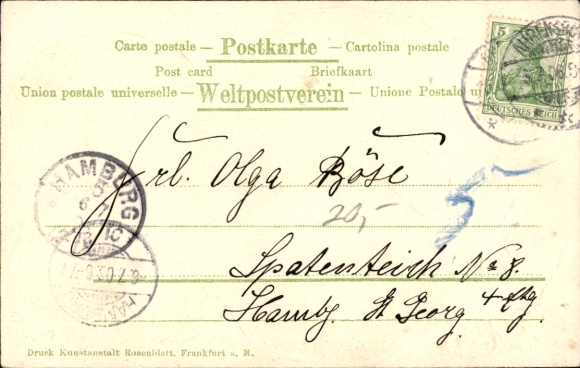 Carte postale — Postkarte — Cartolina postale
Post card Briefkaart
Union postale universelle — Weltpostverein — Unione Postale
5
DEUTSCHES REICH
HAMBURG
Frl. Olga Böse
20,-
5
Spatenteich No 8.
Hambg. St Georg 4 Etg
Druck Kunstanstalt Rosenblatt, Frankfurt a. M.